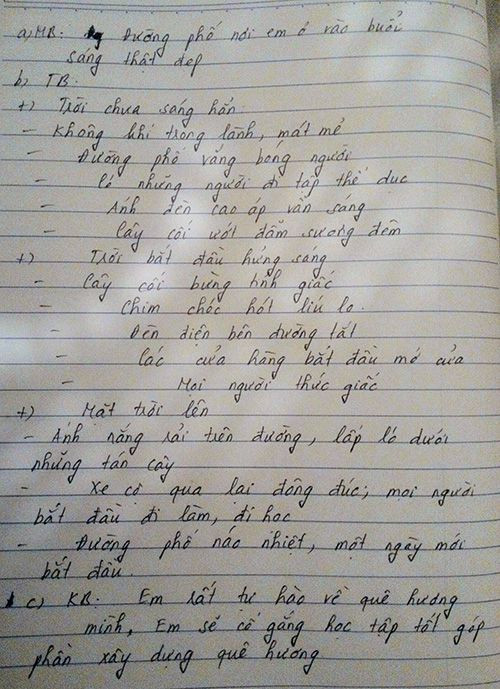 a) MB: Đường phố nơi em ở vào buổi
sáng thật đẹp
b) TB:
+) Trời chưa sáng hẳn:
- Không khí trong lành, mát mẻ
- Đường phố vắng bóng người
- Có những người đi tập thể dục
- Ánh đèn cao áp vẫn sáng
- Cây cối ướt đẫm sương đêm
+) Trời bắt đầu hửng sáng
- Cây cối bừng tỉnh giấc
- Chim chóc hót líu lo.
- Đèn điện bên đường tắt
- Các cửa hàng bắt đầu mở cửa
- Mọi người thức giấc
+) Mặt trời lên
- Ánh nắng rải trên đường, lấp ló dưới
những tán cây
- Xe cộ qua lại đông đúc; mọi người
bắt đầu đi làm, đi học
- Đường phố náo nhiệt, một ngày mới
bắt đầu.
c) KB: Em rất tự hào về quê hương
mình, Em sẽ cố gắng học tập tốt góp
phần xây dựng quê hương